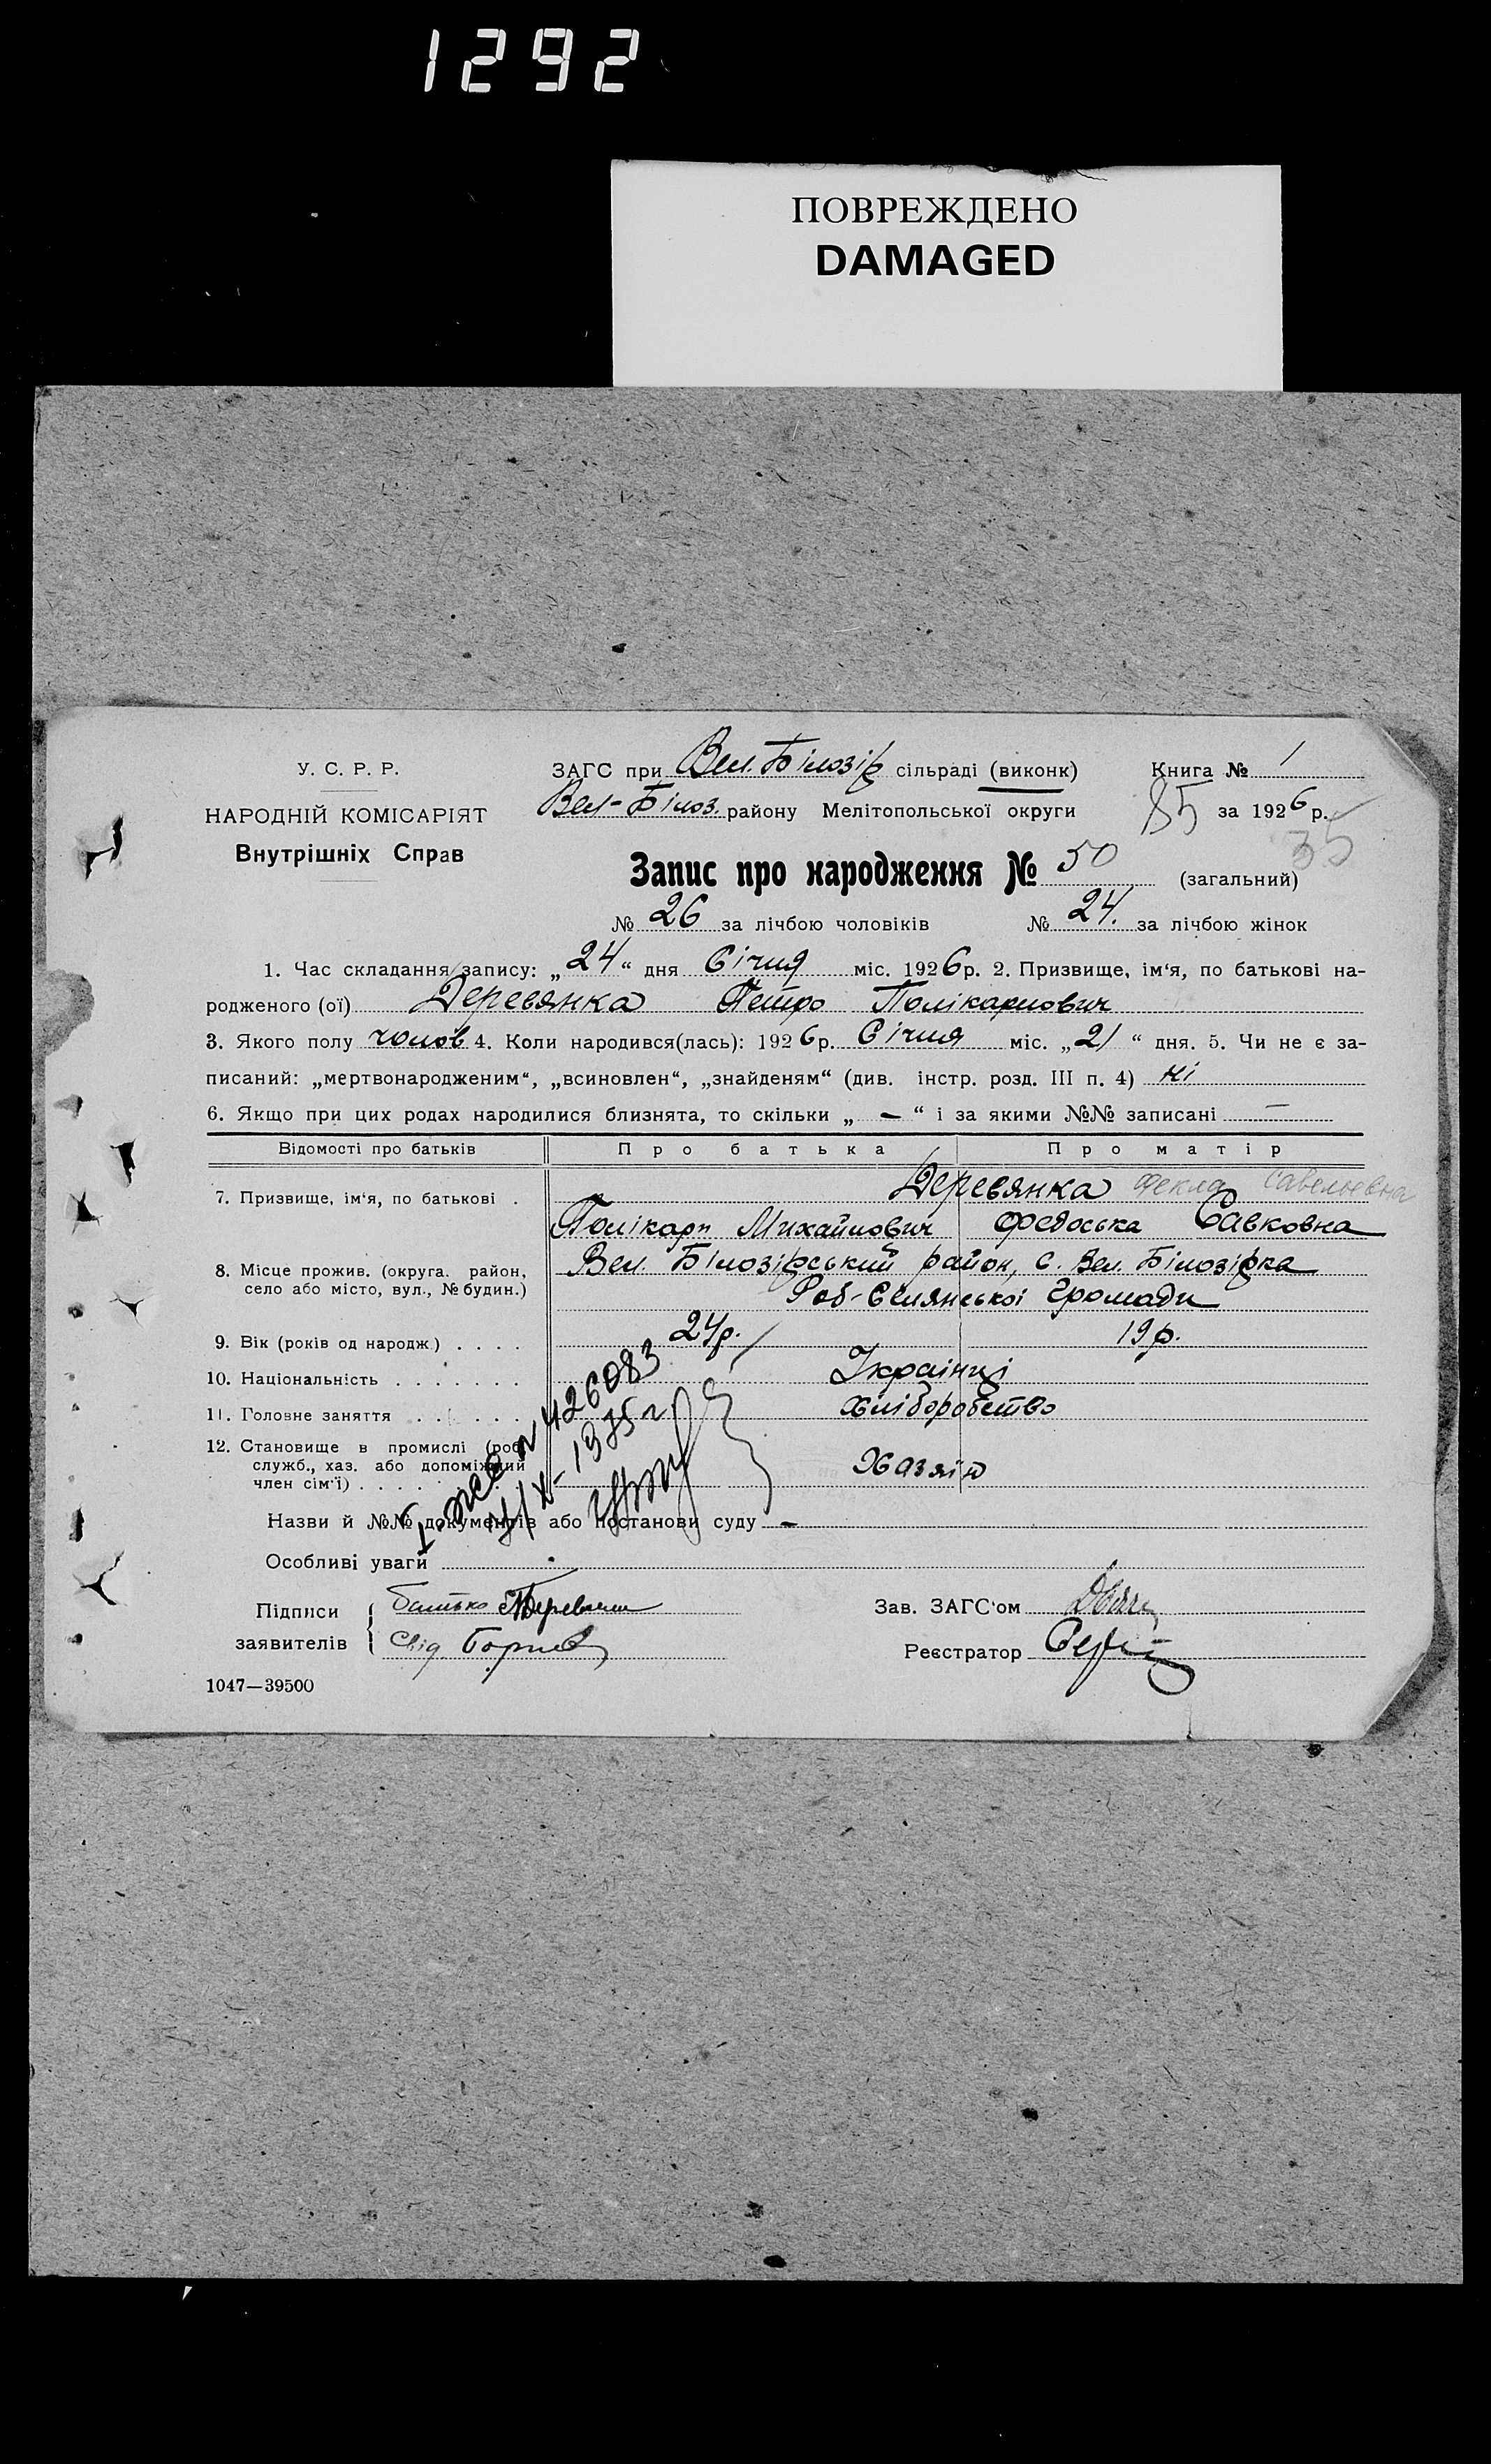 1292
ПОВРЕЖДЕНО
DAMAGED
У. С. Р. Р.
НАРОДНІЙ КОМІСАРІЯТ
Внутрішніх Справ
ЗАГС при Вел. Білозір сільраді (виконк)
Книга № 1
Вел-Білоз. району Мелітопольської округи
85 за 1926 р.
35
Запис про народження № 50 (загальний)
№ 26 за лічбою чоловіків № 24. за лічбою жінок
1. Час складання запису: „24“ дня Січня міс. 1926 р. 2. Призвище, ім‘я, по батькові на-
родженого (ої) Деревянка Петро Полікарпович
3. Якого полу чолов 4. Коли народився(лась): 1926 р. Січня міс. „21“ дня. 5. Чи не є за-
писаний: „мертвонародженим“, „всиновлен“, „знайденям“ (див. інстр. розд. III п. 4) ні
6. Якщо при цих родах народилися близнята, то скільки „ — “ і за якими №№ записані —
Відомості про батьків Про батька Про матір
7. Призвище, ім‘я, по батькові . Деревянка Фекла Савельевна
Полікарп Михайлович Федоська Савковна
8. Місце прожив. (округа. район, село або місто, вул., № будин.) Вел. Білозірський район, с. Вел. Білозірка
Роб-Селянської Громади
9. Вік (років од народж.) . . . . 24р. 19 р.
10. Національність . . . . . . . Українці
11. Головне заняття . . . . . . Хліборобство
12. Становище в промислі (роб.
служб., хаз. або допоміжний
член сім‘ї) . . . . Хазяїн
№ 426083
1975 г
Назви й №№ документів або постанови суду —
Особливі уваги
Підписи заявителів { батько Деревянк
Свід
Зав. ЗАГС‘ом
Реєстратор
1047—39500